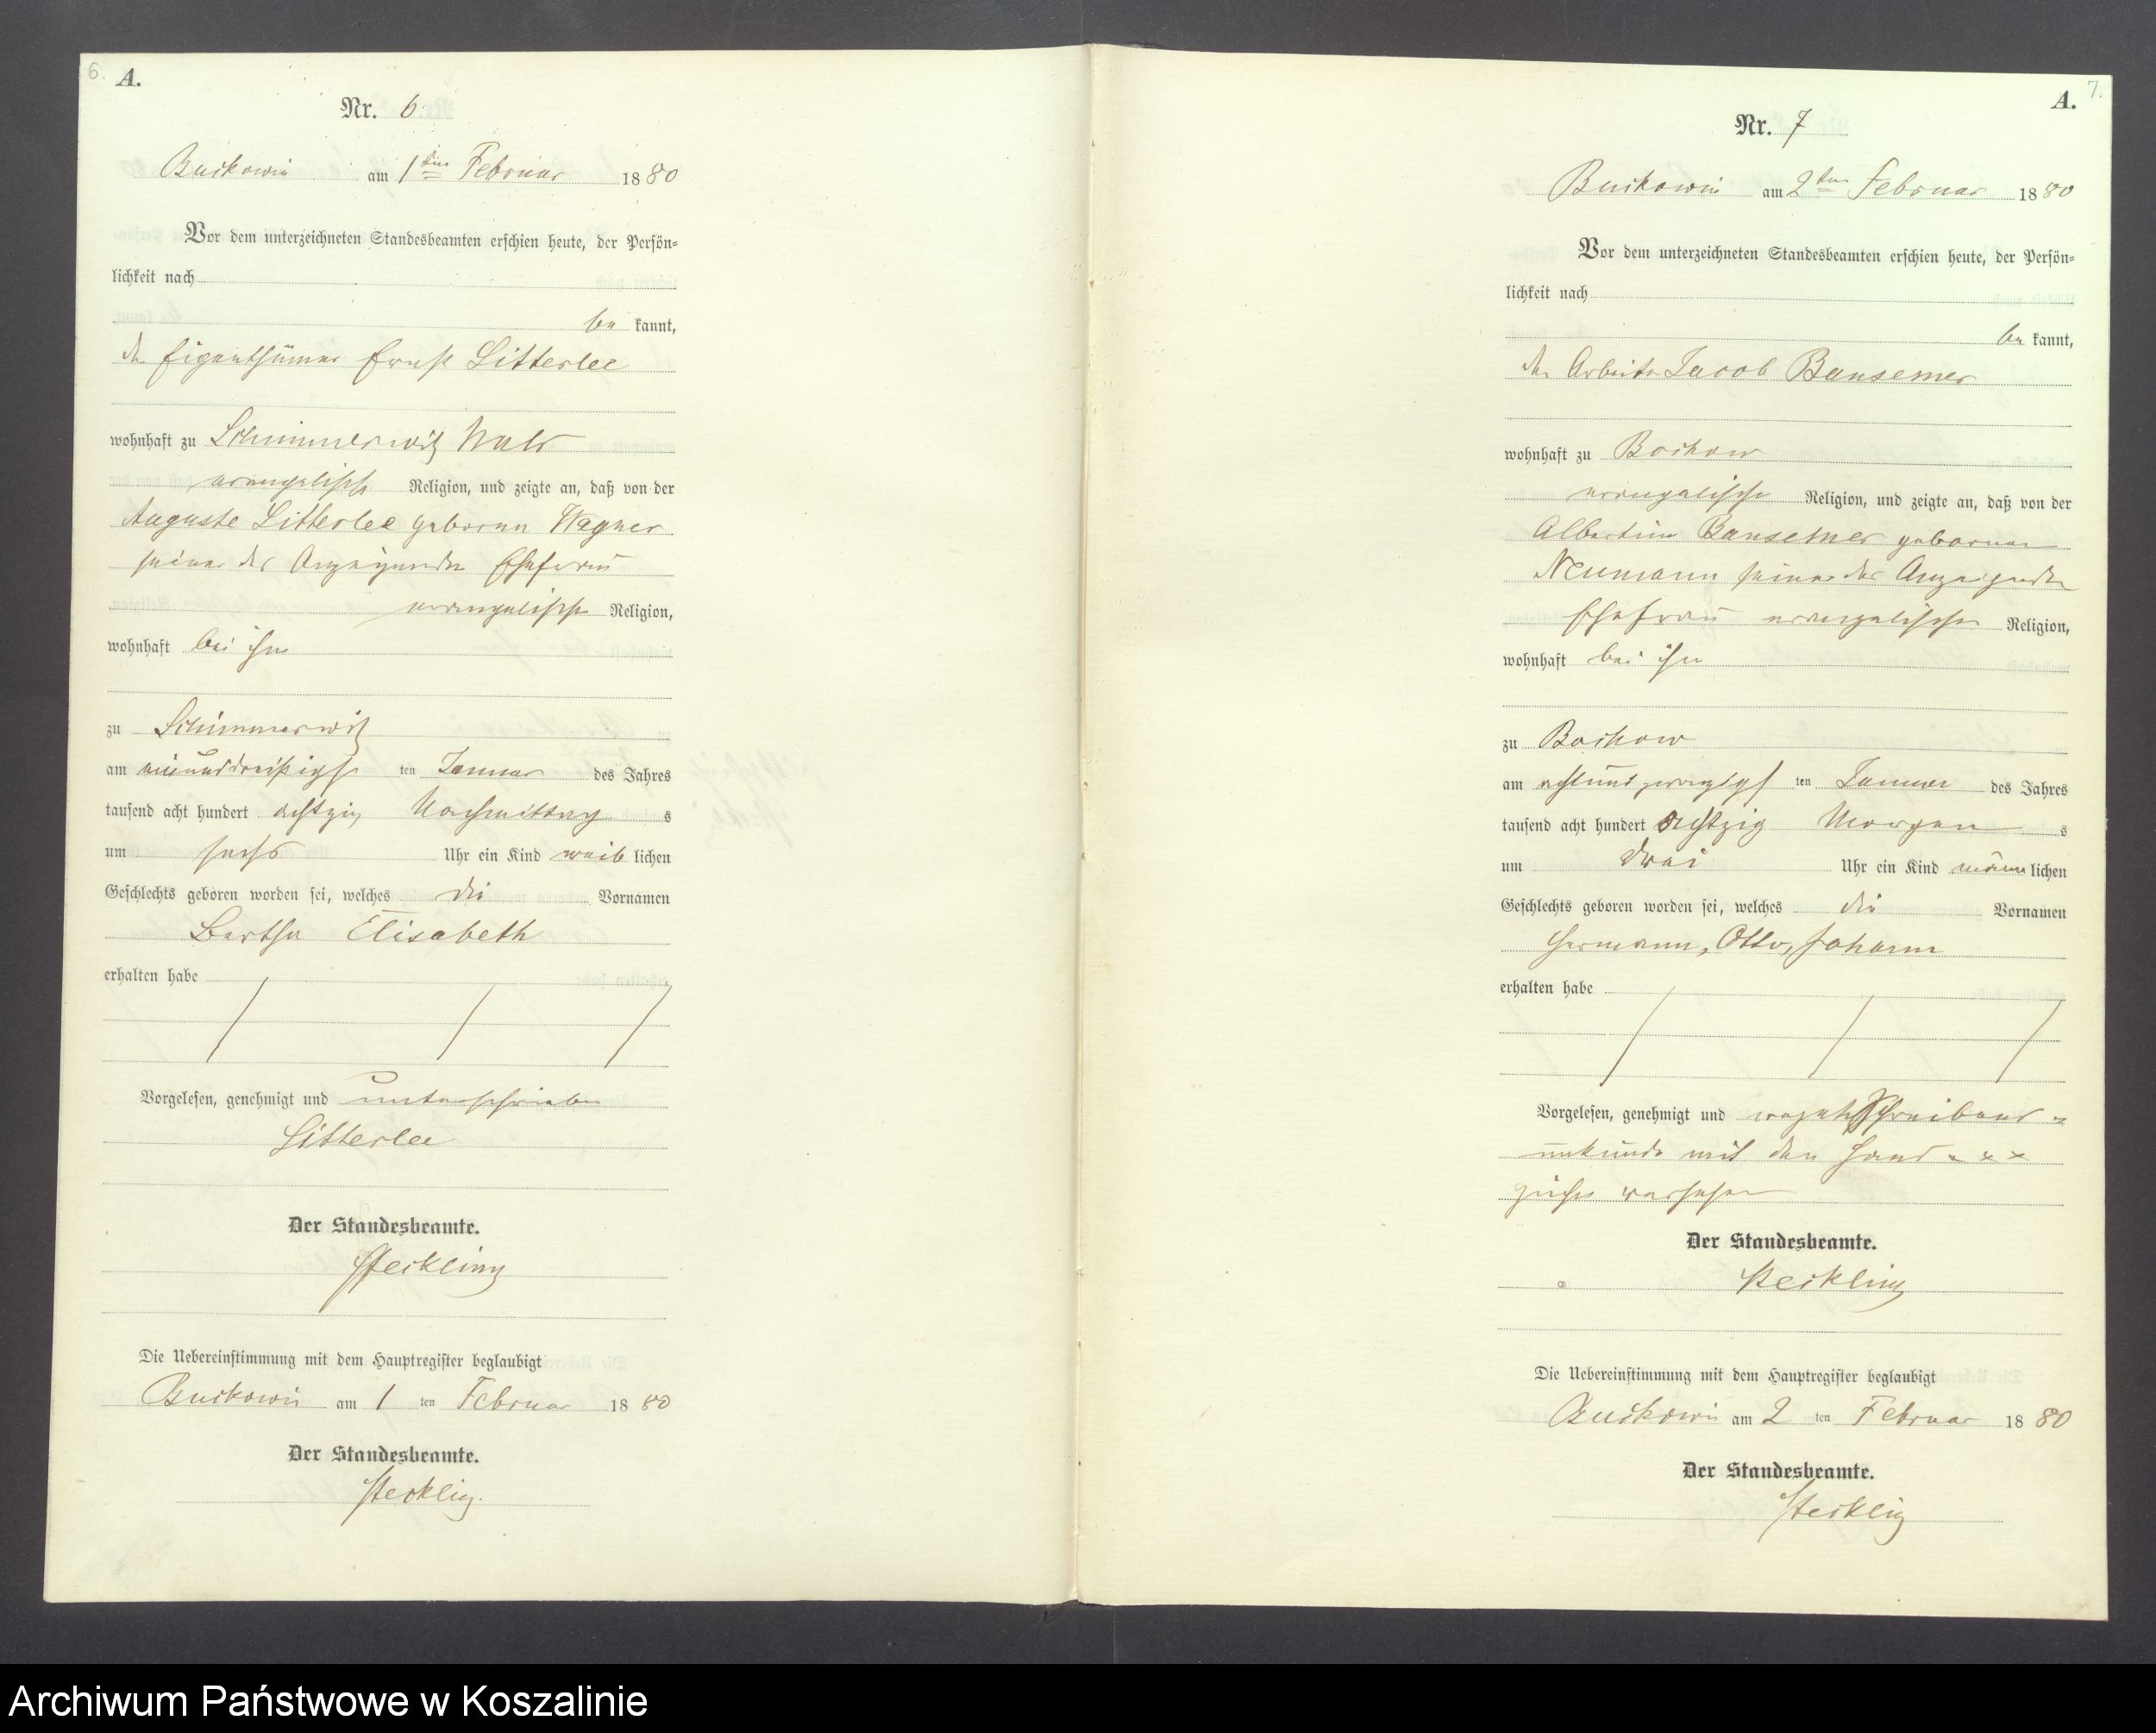 6.
A.
Nr. 6
Buckowin am 1ten Februar 1880
Vor dem unterzeichneten Standesbeamten erschien heute, der Persön-
lichkeit nach
be kannt,
der Eigenthümer Ernst Litterlee
wohnhaft zu Schimmerwitz Wald
evangelische Religion, und zeigte an, daß von der
Auguste Litterlee geboren Wagner
seiner des Anzeigenden Ehefrau
evangelische Religion,
wohnhaft bei ihm
zu Schimmerwitz
am einunddreißigst ten Januar des Jahres
tausend acht hundert achtzig Nachmittag s
um sechs Uhr ein Kind weib lichen
Geschlechts geboren worden sei, welches die Vornamen
Bertha Elisabeth
erhalten habe
Vorgelesen, genehmigt und unterschrieben
Litterlee
Der Standesbeamte.
Steckling
Die Uebereinstimmung mit dem Hauptregister beglaubigt
Buckowin am 1 ten Februar 1880
Der Standesbeamte.
Steckling.
7.
A.
Nr. 7
Buckowin am 2ten Februar 1880
Vor dem unterzeichneten Standesbeamten erschien heute, der Persön-
lichkeit nach
be kannt,
der Arbeiter Jacob Bansemer
wohnhaft zu Bochow
evangelische Religion, und zeigte an, daß von der
Albertine Bansemer geborene
Neumann seiner des Anzeigenden
Ehefrau evangelischer Religion,
wohnhaft bei ihm
zu Bochow
am achtundzwanzigst ten Januar des Jahres
tausend acht hundert achtzig Morgen s
um drei Uhr ein Kind männ lichen
Geschlechts geboren worden sei, welches die Vornamen
Hermann, Otto, Johann
erhalten habe
Vorgelesen, genehmigt und wegen Schreibens
unkunde mit den Hand x x x
zeichen versehen
Der Standesbeamte.
Steckling
Die Uebereinstimmung mit dem Hauptregister beglaubigt
Buckowin am 2 ten Februar 1880
Der Standesbeamte.
Steckling
Archiwum Państwowe w Koszalinie